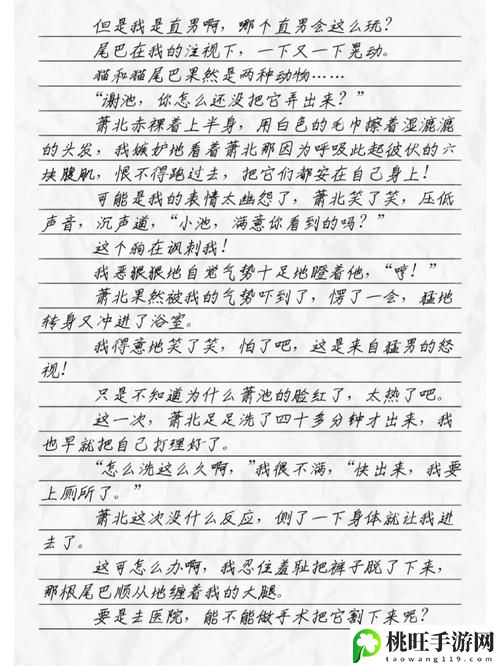 但是我是直男啊，哪个直男会这么玩？
尾巴在我的注视下，一下又一下晃动。
猫和猫尾巴果然是两种动物……
“谢池，你怎么还没把它弄出来？”
萧北赤裸着上半身，用白色的毛巾擦着湿漉漉
的头发，我嫉妒地看着萧北那因为呼吸此起彼伏的六
块腹肌，恨不得跑过去，把它们都安在自己身上！
可能是我的表情太幽怨了，萧北笑了笑，压低
声音，沉声道，“小池，满意你看到的吗？”
这个狗在讽刺我！
我恶狠狠地自觉气势十足地瞪着他，“哼！”
萧北果然被我的气势吓到了，愣了一会，猛地
转身又冲进了浴室。
我得意地笑了笑，怕了吧，这是来自猛男的怒
视！
只是不知道为什么萧池的脸红了，太热了吧。
这一次，萧北足足洗了四十多分钟才出来，我
也早就把自己打理好了。
“怎么洗这么久啊，”我很不满，“快出来，我要
上厕所了。”
萧北这次没什么反应，侧了一下身体就让我进
去了。
这可怎么办啊，我忍住羞耻把裤子脱了下来，
那根尾巴顺从地缠着我的大腿。
要是去医院，能不能做手术把它割下来呢？
桃旺手游网
taowang119.com